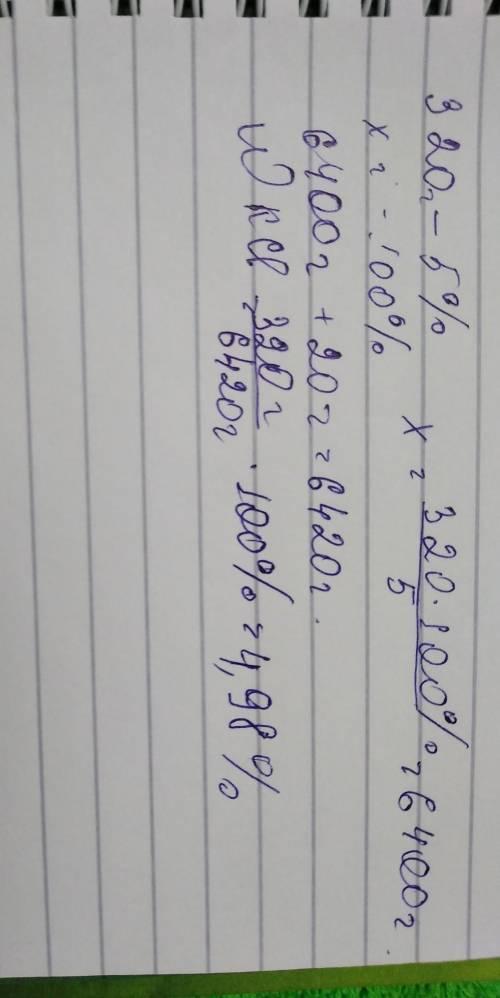 320г - 5% x = 320·100% / 5 = 6400г.
x г - 100%
6400г + 20г = 6420г.
W KCl = 320г / 6420г · 100% = 4,98%